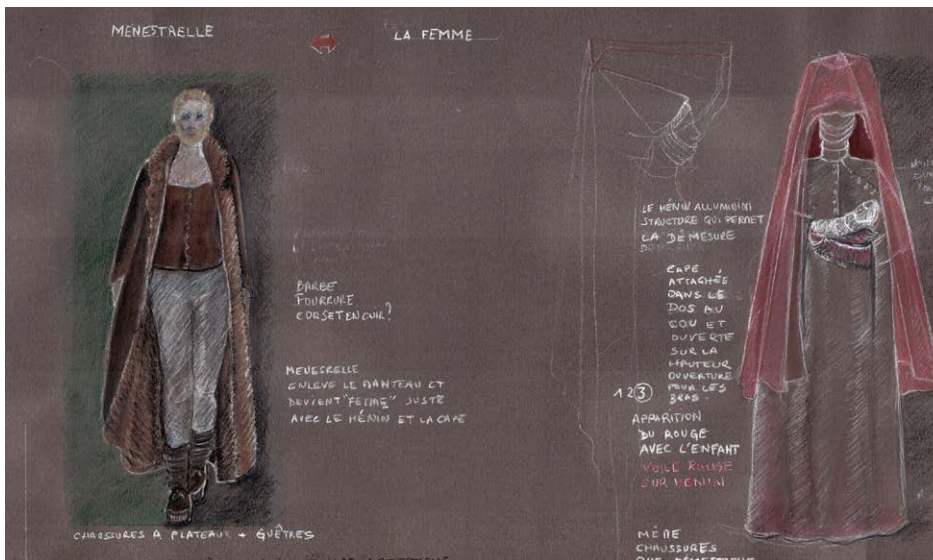 MENESTRELLE
LA FEMME
BARBE
FOURRURE
CORSET EN CUIR?
MENESRELLE
ENLEVE LE MANTEAU ET
DEVIENT "FEMME" JUSTE
AVEC LE HÉNIN ET LA CAPE
CHAUSSURES A PLATEAUX + GUÊTRES
LE HÉNIN ALLUMINION
STRUCTURE QUI PERMET
LA DÉMESURE
CAPE
ATTACHÉE
DANS LE
DOS AU
COU ET
OUVERTE
SUR LA
HAUTEUR
OUVERTURE
POUR LES
BRAS.
1 2 3
APPARITION
DU ROUGE
AVEC L'ENFANT
VOILE ROUGE
SUR HENIN
MÊME
CHAUSSURES